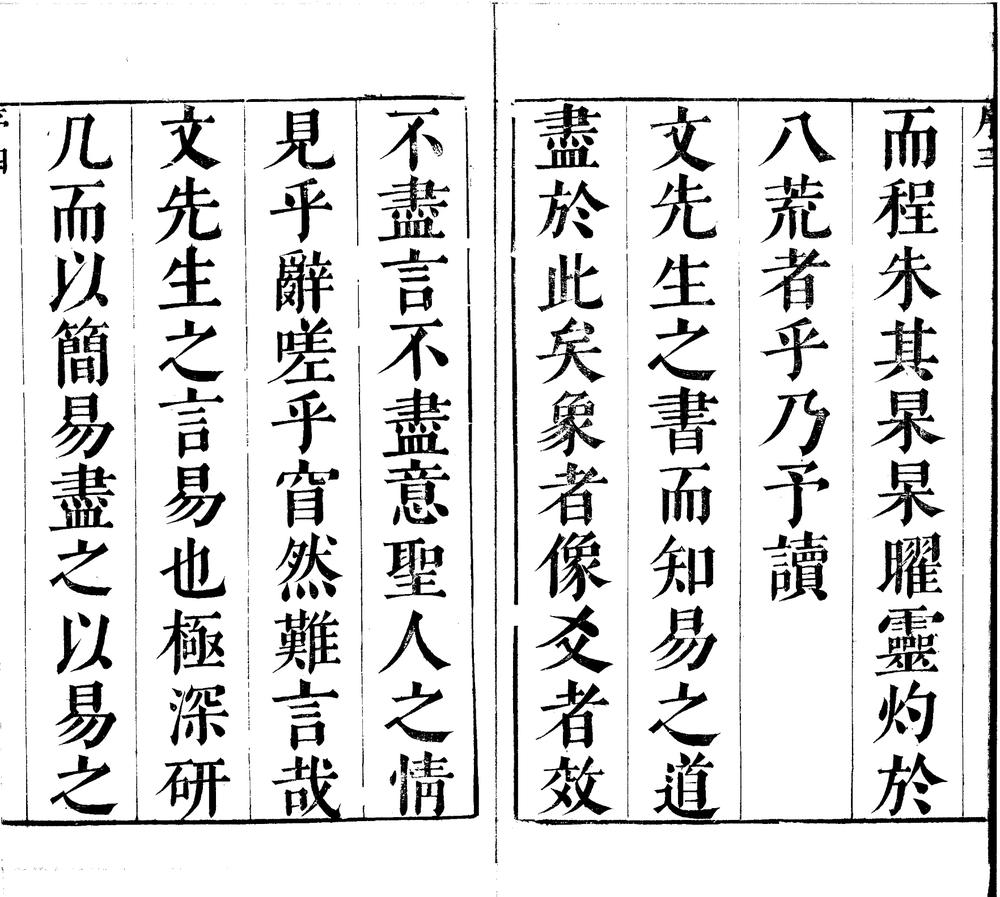 而程朱其杲杲曜靈灼於
八荒者乎乃予讀
文先生之書而知易之道
盡於此矣象者像爻者效
不盡言不盡意聖人之情
見乎辭嗟乎窅然難言哉
文先生之言易也極深研
几而以簡易盡之以易之